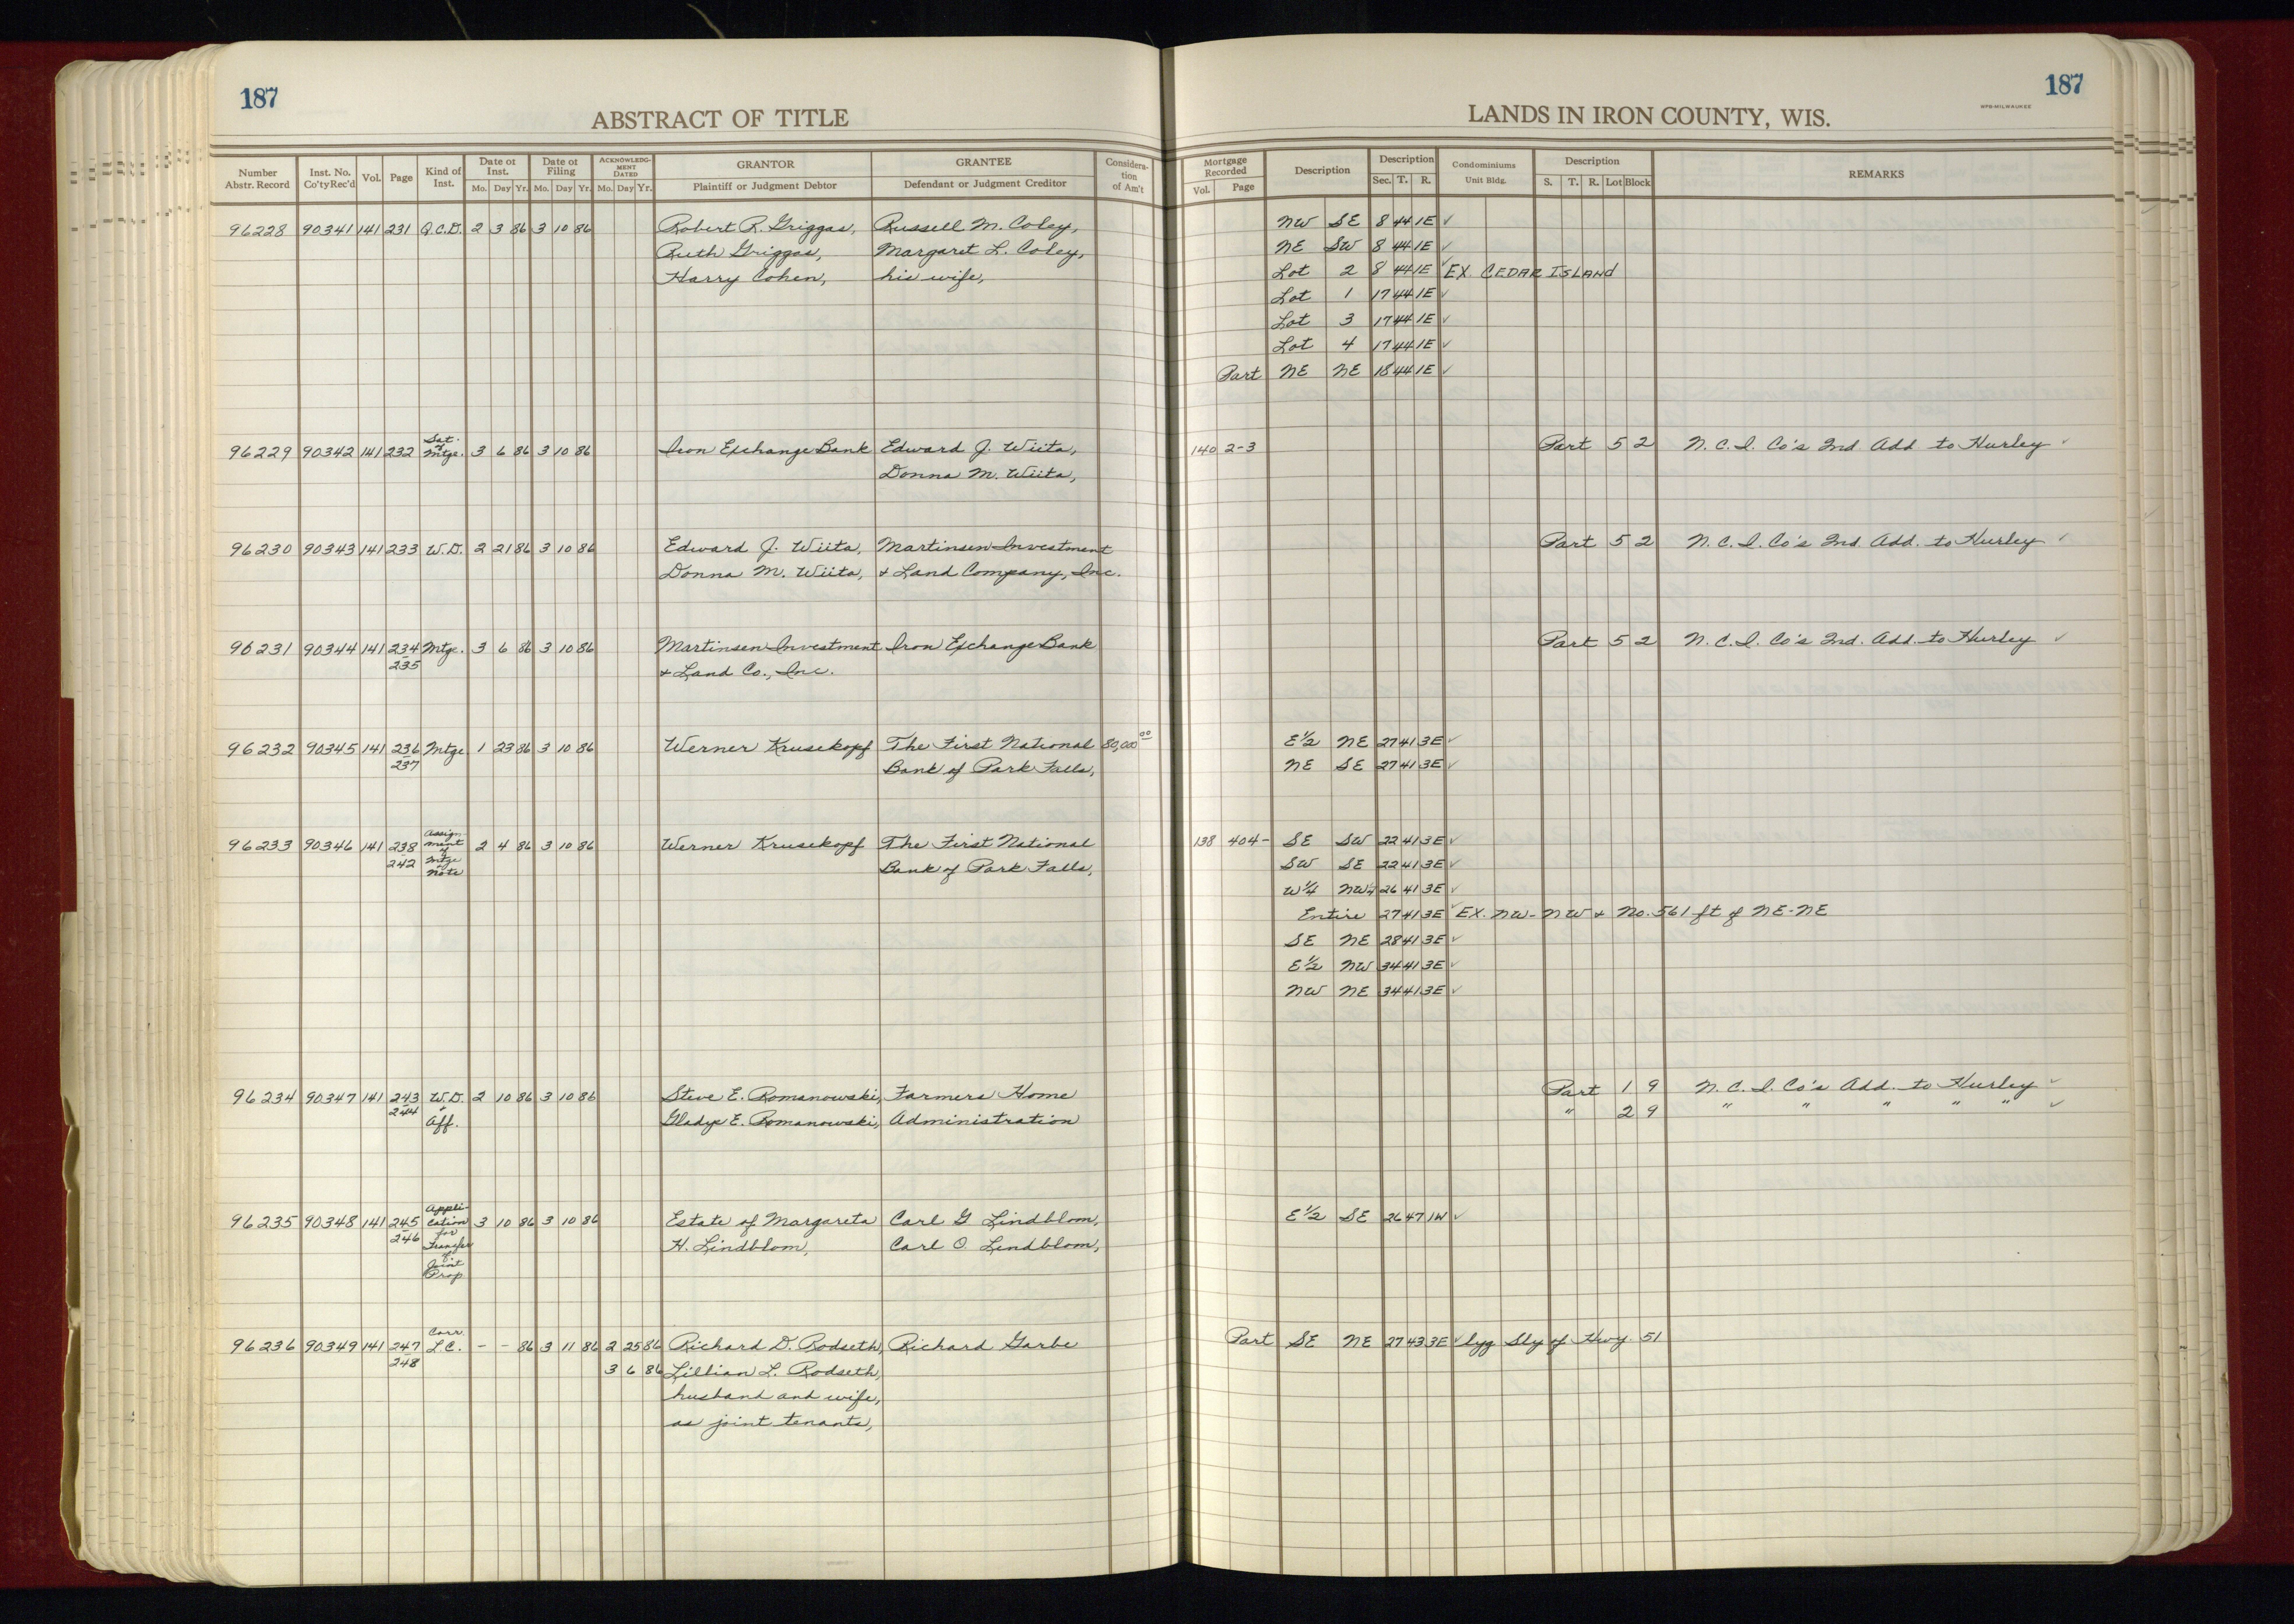 187
ABSTRACT OF TITLE
Number Abstr. Record Inst. No. Co'ty Rec'd Vol. Page Kind of Inst. Date of Inst. Mo. Day Yr. Date of Filing Mo. Day Yr. ACKNOWLEDGMENT DATED Mo. Day Yr. GRANTOR Plaintiff or Judgment Debtor GRANTEE Defendant or Judgment Creditor Consideration of Am't
96228 90341 141 231 Q.C.D. 2 3 86 3 10 86 Robert R. Griggas, Russell M. Coley,
Ruth Griggas, Margaret L. Coley,
Harry Cohen, his wife,
96229 90342 141 232 Sat. of Mtge. 3 6 86 3 10 86 Iron Exchange Bank Edward J. Wiita,
Donna M. Wiita,
96230 90343 141 233 W.D. 2 21 86 3 10 86 Edward J. Wiita, Martinsen Investment
Donna M. Wiita, & Land Company, Inc.
96231 90344 141 234 Mtge. 3 6 86 3 10 86 Martinsen Investment Iron Exchange Bank
235 & Land Co., Inc.
96232 90345 141 236 Mtge 1 23 86 3 10 86 Werner Krusekopf The First National 80,000 00
237 Bank of Park Falls,
96233 90346 141 238 Assignment of Mtge Note 2 4 86 3 10 86 Werner Krusekopf The First National
242 Bank of Park Falls,
96234 90347 141 243 W.D. 2 10 86 3 10 86 Steve E. Romanowski, Farmers Home
244 & Aff. Gladys E. Romanowski, Administration
96235 90348 141 245 Application for Transfer of Joint Prop 3 10 86 3 10 86 Estate of Margareta Carl G Lindblom,
246 H. Lindblom, Carl O. Lindblom,
96236 90349 141 247 Corr. L.C. - - 86 3 11 86 2 25 86 Richard D. Rodseth, Richard Garbe
248 3 6 86 Lillian L. Rodseth,
husband and wife,
as joint tenants,
187
WPB-MILWAUKEE
LANDS IN IRON COUNTY, WIS.
Mortgage Recorded Vol. Page Description Description Sec. T. R. Condominiums Unit Bldg. Description S. T. R. Lot Block REMARKS
NW SE 8 44 1E ✓
NE SW 8 44 1E ✓
Lot 2 8 44 1E ✓ EX. CEDAR ISLAND
Lot 1 17 44 1E ✓
Lot 3 17 44 1E ✓
Lot 4 17 44 1E ✓
Part NE NE 18 44 1E ✓
140 2-3 Part 5 2 N.C.I. Co's 2nd Add to Hurley ✓
Part 5 2 N.C.I. Co's 2nd. Add. to Hurley ✓
Part 5 2 N.C.I. Co's 2nd. Add. to Hurley ✓
E½ NE 27 41 3E ✓
NE SE 27 41 3E ✓
138 404- SE SW 22 41 3E ✓
SW SE 22 41 3E ✓
W¼ NW¼ 26 41 3E ✓
Entire 27 41 3E ✓ EX. NW-NW & No. 561 ft of NE-NE
SE NE 28 41 3E ✓
E½ NW 34 41 3E ✓
NW NE 34 41 3E ✓
Part 1 9 N.C.I. Co's Add. to Hurley ✓
" 2 9 " " " " " ✓
E½ SE 26 47 1W ✓
Part SE NE 27 43 3E ✓ lyg Sly of Hwy. 51